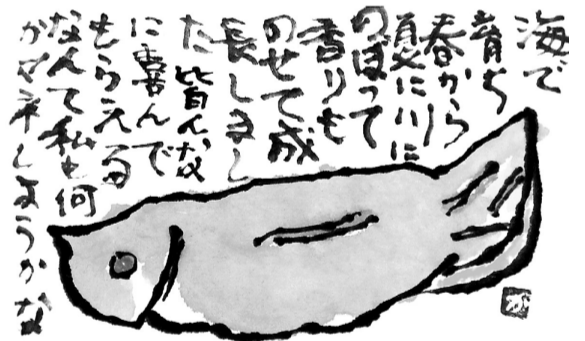 海で
育ち
春から
夏に川に
のぼって
香りも
のせて成
長しまし
た 皆んな
に喜んで
もらえる
なんて私も何
かせネしようかな
か